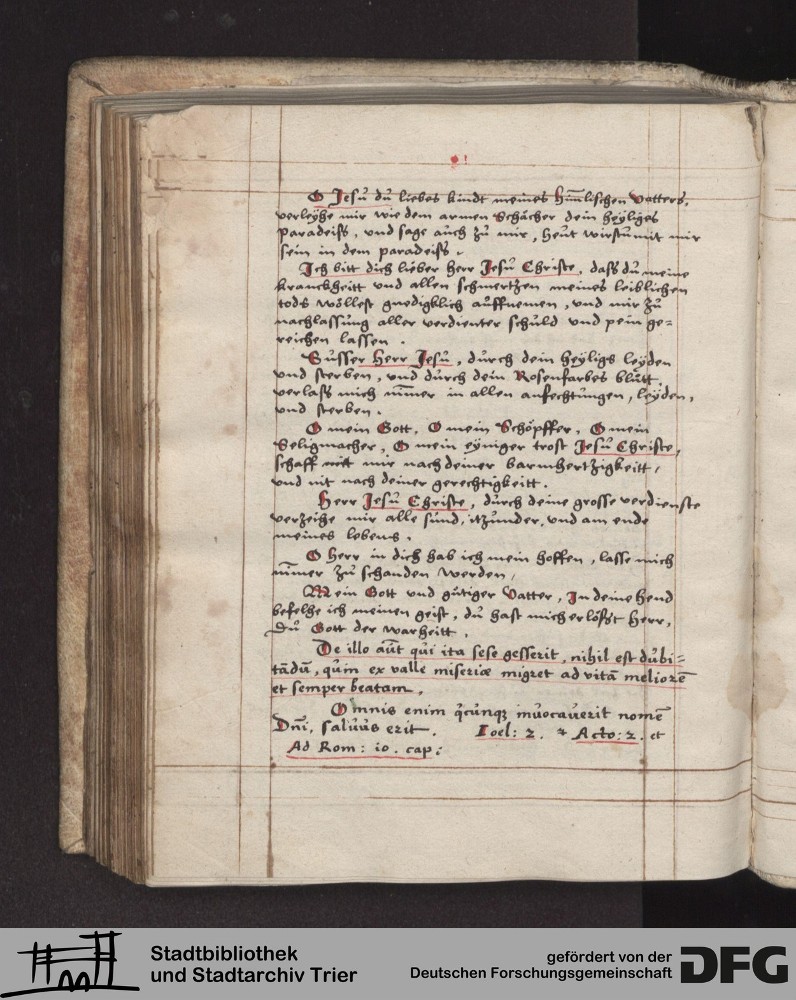 O Jesu du liebes kindt meines him̄lischen Vatters,
verleyhe mir wie dem armen Schächer dein heyliges
paradeiß, und sage auch zu mir, heut wirstu mit mir
sein in dem paradeiß.
Ich bitt dich lieber Herr Jesu Christe, daß du meine
kranckheitt und allen schmertzen meines leiblichen
tods wöllest gnedigklich auffnemen, und mir zu
nachlassung aller verdienter schuld und pein ge=
reichen lassen.
Süsser Herr Jesu, durch dein heyligs leyden
und sterben, und durch dein Rosenfarbes blutt,
verlaß mich nim̄mer in allen anfechtungen, leyden,
und sterben.
O mein Gott, O mein Schöpffer, O mein
Seligmacher, O mein eyniger trost Jesu Christe,
schaff mit mir nach deiner barmhertzigkeitt,
und nit nach deiner gerechtigkeitt.
Herr Jesu Christe, durch deine grosse verdienste
verzeihe mir alle sünd, itzunder, und am ende
meines lebens.
O Herr in dich hab ich mein hoffen, lasse mich
nim̄mer zu schanden werden,
Mein Gott und gütiger Vatter, In deine hend
befelhe ich meinen geist, du hast mich erlößt Herr,
Du Gott der warheitt.
De illo aūt qui ita sese gesserit, nihil est dubi=
tādū, quin ex valle miseriæ migret ad vitā meliorē
et semper beatam.
Omnis enim q̄cunqꝫ invocaverit nomē
Dn̄i, salvus erit. Ioel: 2. & Acto: 2. et
Ad Rom: io. cap:
Stadtbibliothek
und Stadtarchiv Trier
gefördert von der
Deutschen Forschungsgemeinschaft
DFG